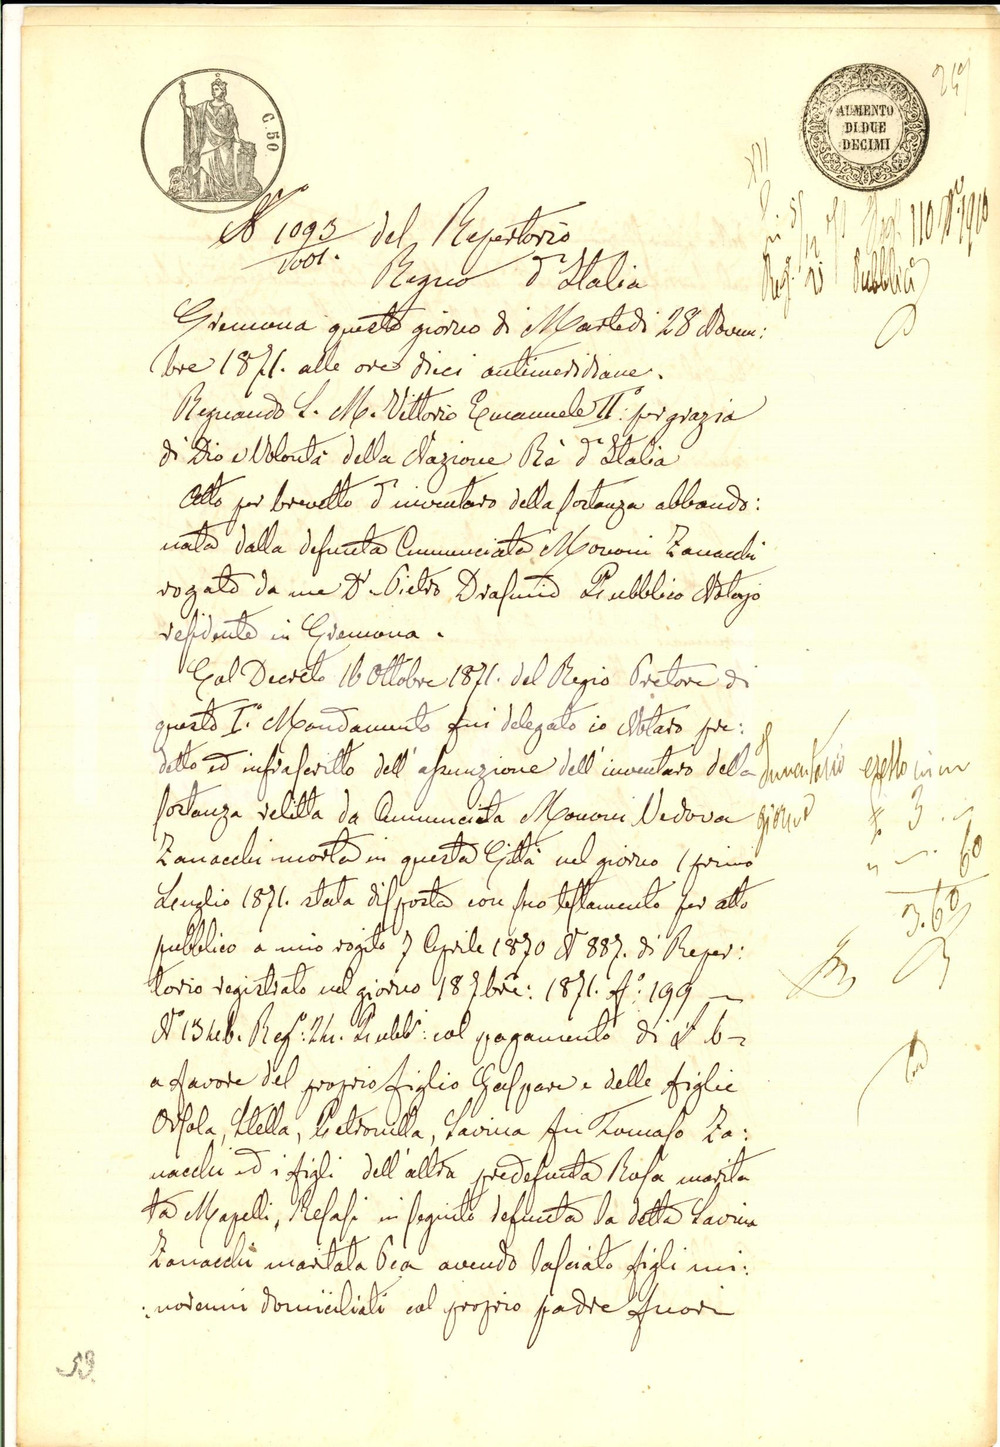 C. 50.
AUMENTO
DI DUE
DECIMI
N° 1093 del Repertorio
1001.
Regno d'Italia
Cremona questo giorno di Martedi 28 Novem:
bre 1871. alle ore dieci antimeridiane.
Regnando S. M. Vittorio Emanuele II°: per grazia
di Dio e Volontà della Nazione Rè d'Italia
Atto per brevetto d'inventaro della sostanza abbando:
nata dalla defunta Annunciata Moroni Zanacchi
rogato da me Dr. Pietro Pubblico Notajo
residente in Cremona.
Col Decreto 16 Ottobre 1871. del Regio Pretore di
questo I°. Mandamento fui delegato io Notaro pre:
detto ed infrascritto dell'assunzione dell'inventaro della
sostanza relitta da Annunciata Moroni Vedova
Zanacchi morta in questa Città nel giorno 1 primo
Luglio 1871. stata disposta con suo testamento per atto
pubblico a mio rogito 7 Aprile 1870 N° 887. di Reper:
torio registrato nel giorno 18 7bre: 1871. f°: 199
N° 1346. Reg°: 24. Pubb°: col pagamento di £ 6
a favore del proprio figlio Gaspare e delle figlie
Orsola, Stella, Petronilla, Savina fu Tomaso Za:
nacchi ed i figli dell'altra predefunta Rosa marita
ta Mapelli, Resasi in seguito defunta la detta Savina
Zanacchi maritata Pea avendo lasciato figli mi:
:norenni domiciliati col proprio padre fuori
Reg. 110 N° 1910
Pubblici
Inventario
giorni
3.
60
3.60
53.